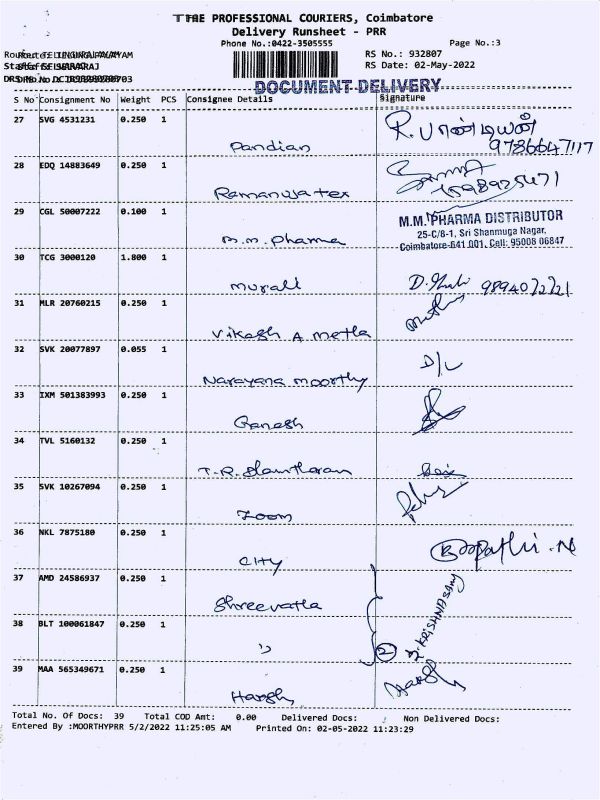 THE PROFESSIONAL COURIERS, Coimbatore
Delivery Runsheet - PRR
Phone No.:0422-3505555
Page No.:3
RS No.: 932807
RS Date: 02-May-2022
DOCUMENT DELIVERY
S No Consignment No Weight PCS Consignee Details Signature
27 SVG 4531231 0.250 1
Pandian R. பாண்டியன்
9786647117
28 EDQ 14883649 0.250 1
Ramanuja tex
29 CGL 50007222 0.100 1
m.m. Pharma
M.M. PHARMA DISTRIBUTOR
25-C/8-1, Sri Shanmuga Nagar,
Coimbatore-641 001. Cell: 95008 06847
30 TCG 3000120 1.800 1
murali
31 MLR 20760215 0.250 1
Vikash A metla
32 SVK 20077897 0.055 1
Narayana moorthy D/L
33 IXM 501383993 0.250 1
Ganesh
34 TVL 5160132 0.250 1
T.R.
35 SVK 10267094 0.250 1
Zoom
36 NKL 7875180 0.250 1
City Boopathi .N
37 AMD 24586937 0.250 1
Shreevatla
38 BLT 100061847 0.250 1
2
39 MAA 565349671 0.250 1
Harsh
Total No. Of Docs: 39 Total COD Amt: 0.00 Delivered Docs: Non Delivered Docs:
Entered By :MOORTHYPRR 5/2/2022 11:25:05 AM Printed On: 02-05-2022 11:23:29